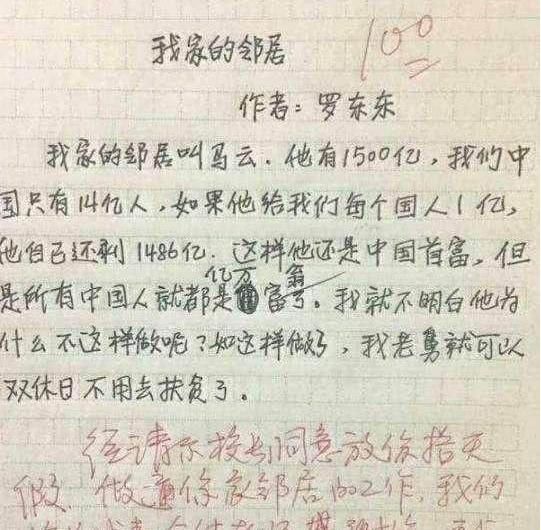 我家的邻居
100
作者：罗东东
我家的邻居叫马云.他有1500亿，我们中
国只有14亿人，如果他给我们每个国人1亿，
他自己还剩1486亿.这样他还是中国首富，但
是所有中国人就都是亿万富翁了。我就不明白他为
什么不这样做呢？如这样做了，我老舅就可以
双休日不用去扶贫了。
经请示校长同意放你搭天
假.做通你家邻居的工作，我们